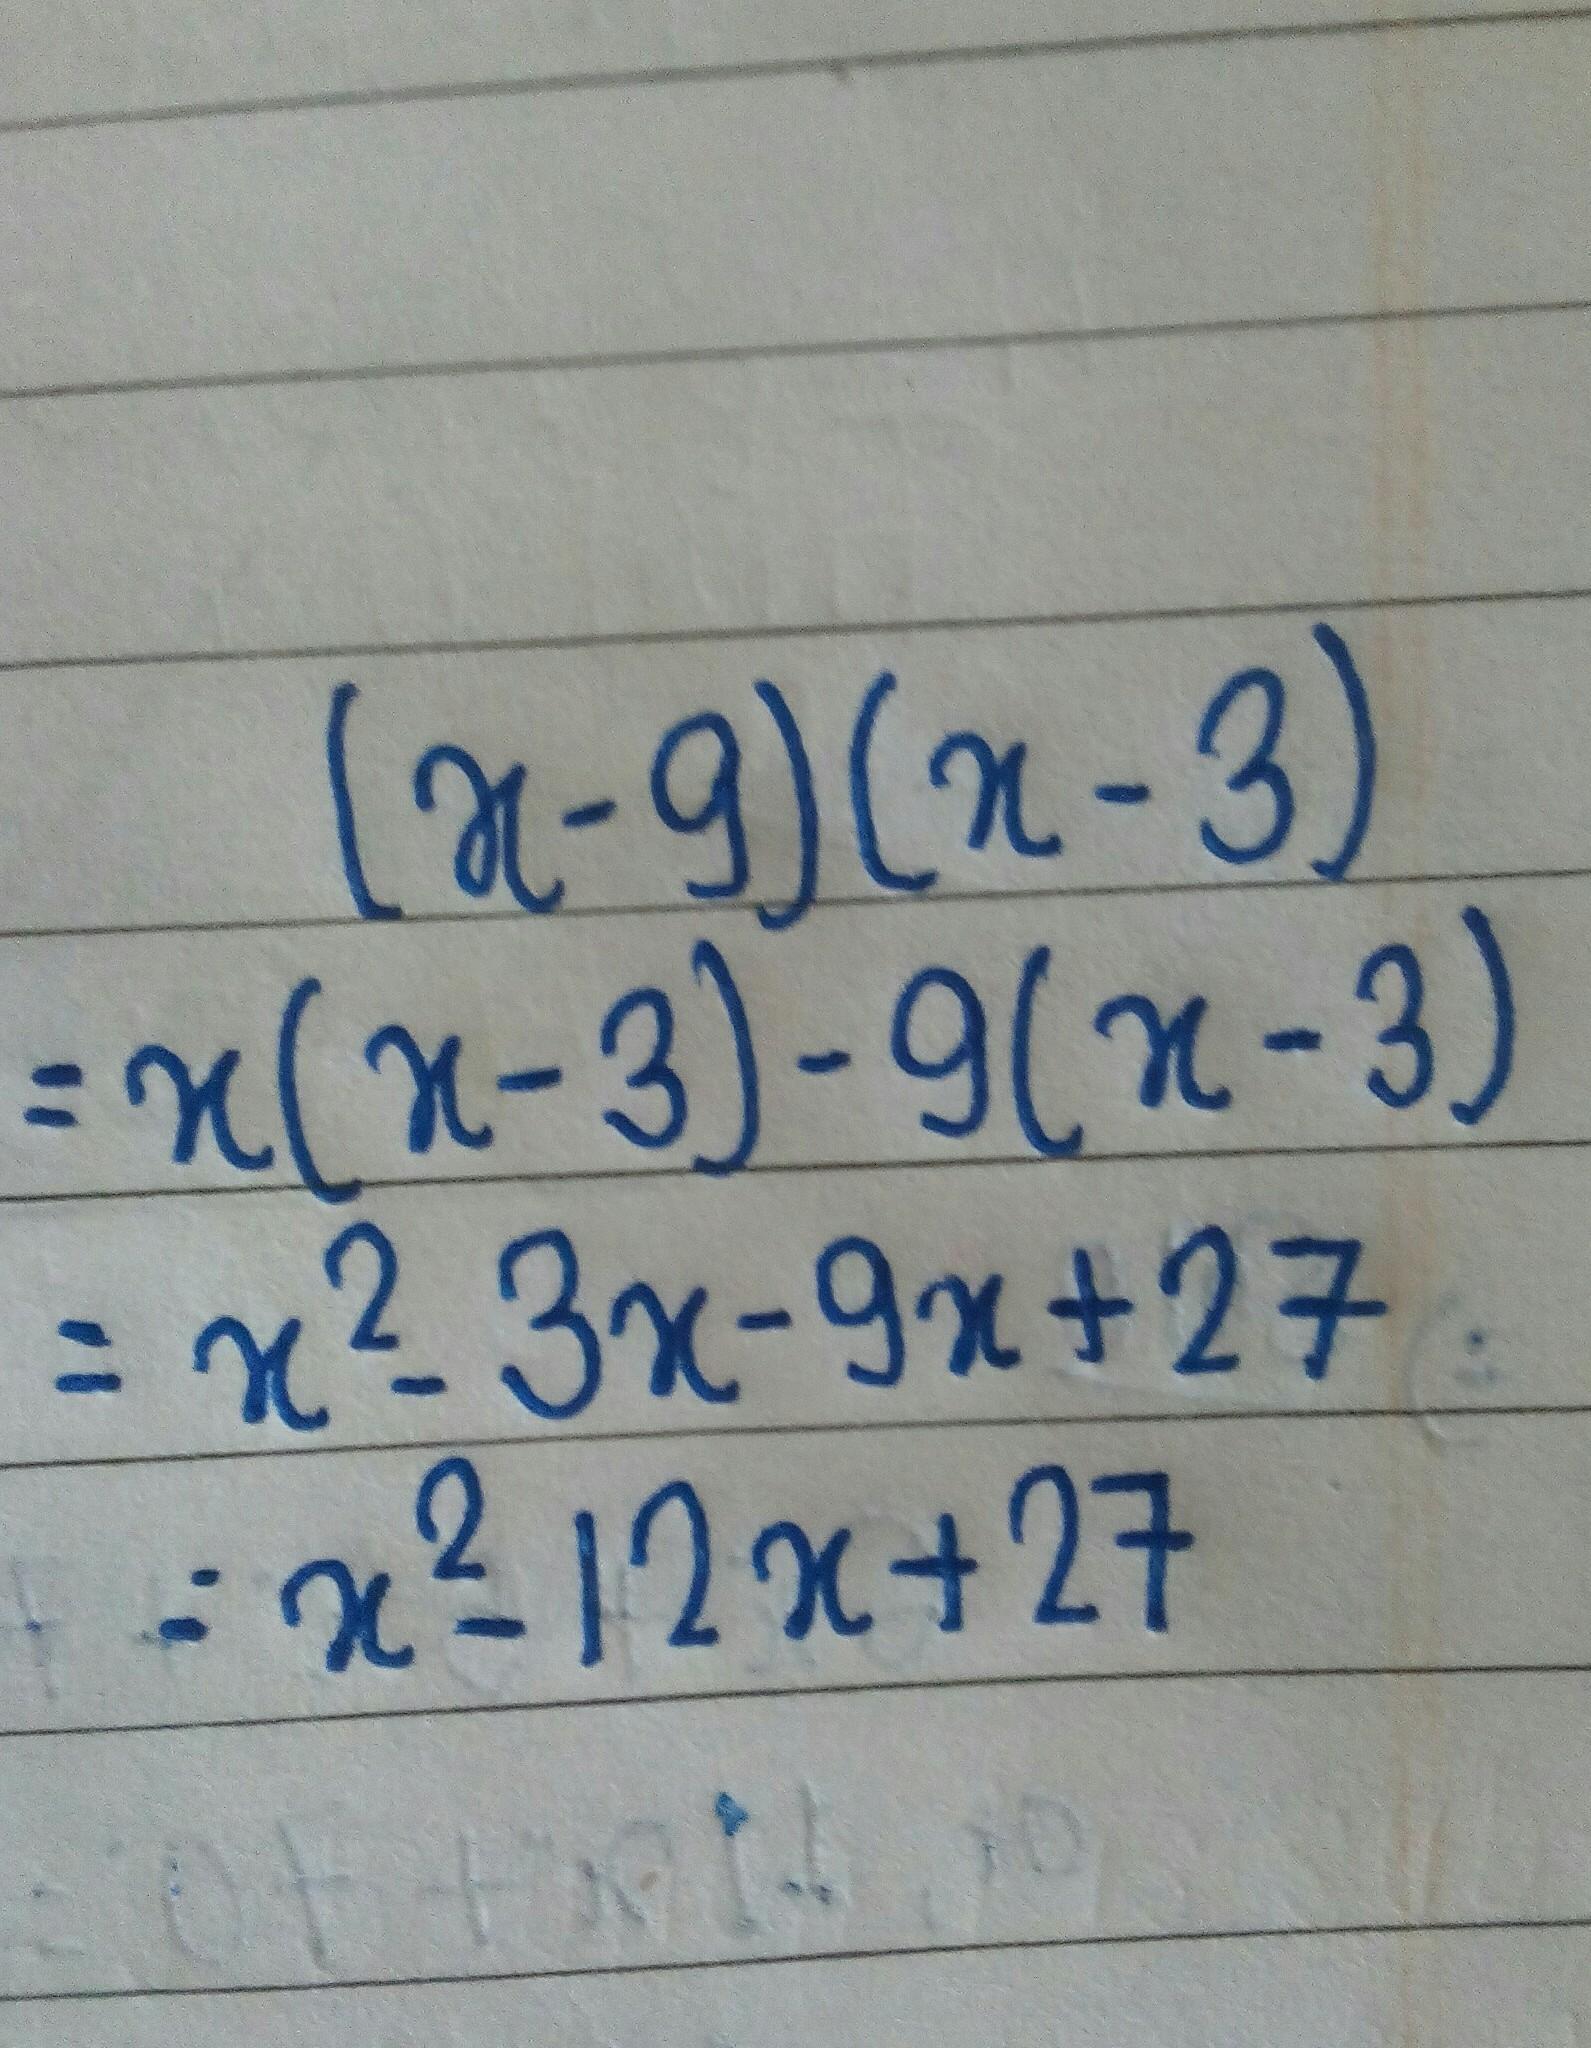 (x-9)(x-3)
=x(x-3)-9(x-3)
=x²-3x-9x+27
=x²-12x+27